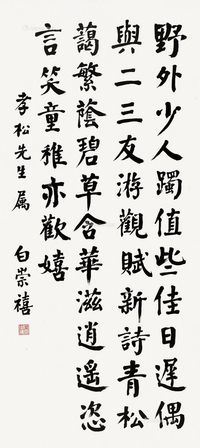 野外少人躅值些佳日遲偶
與二三友游觀賦新詩青松
藹繁蔭碧草含華滋逍遙恣
言笑童稚亦歡嬉
孝松先生屬
白崇禧